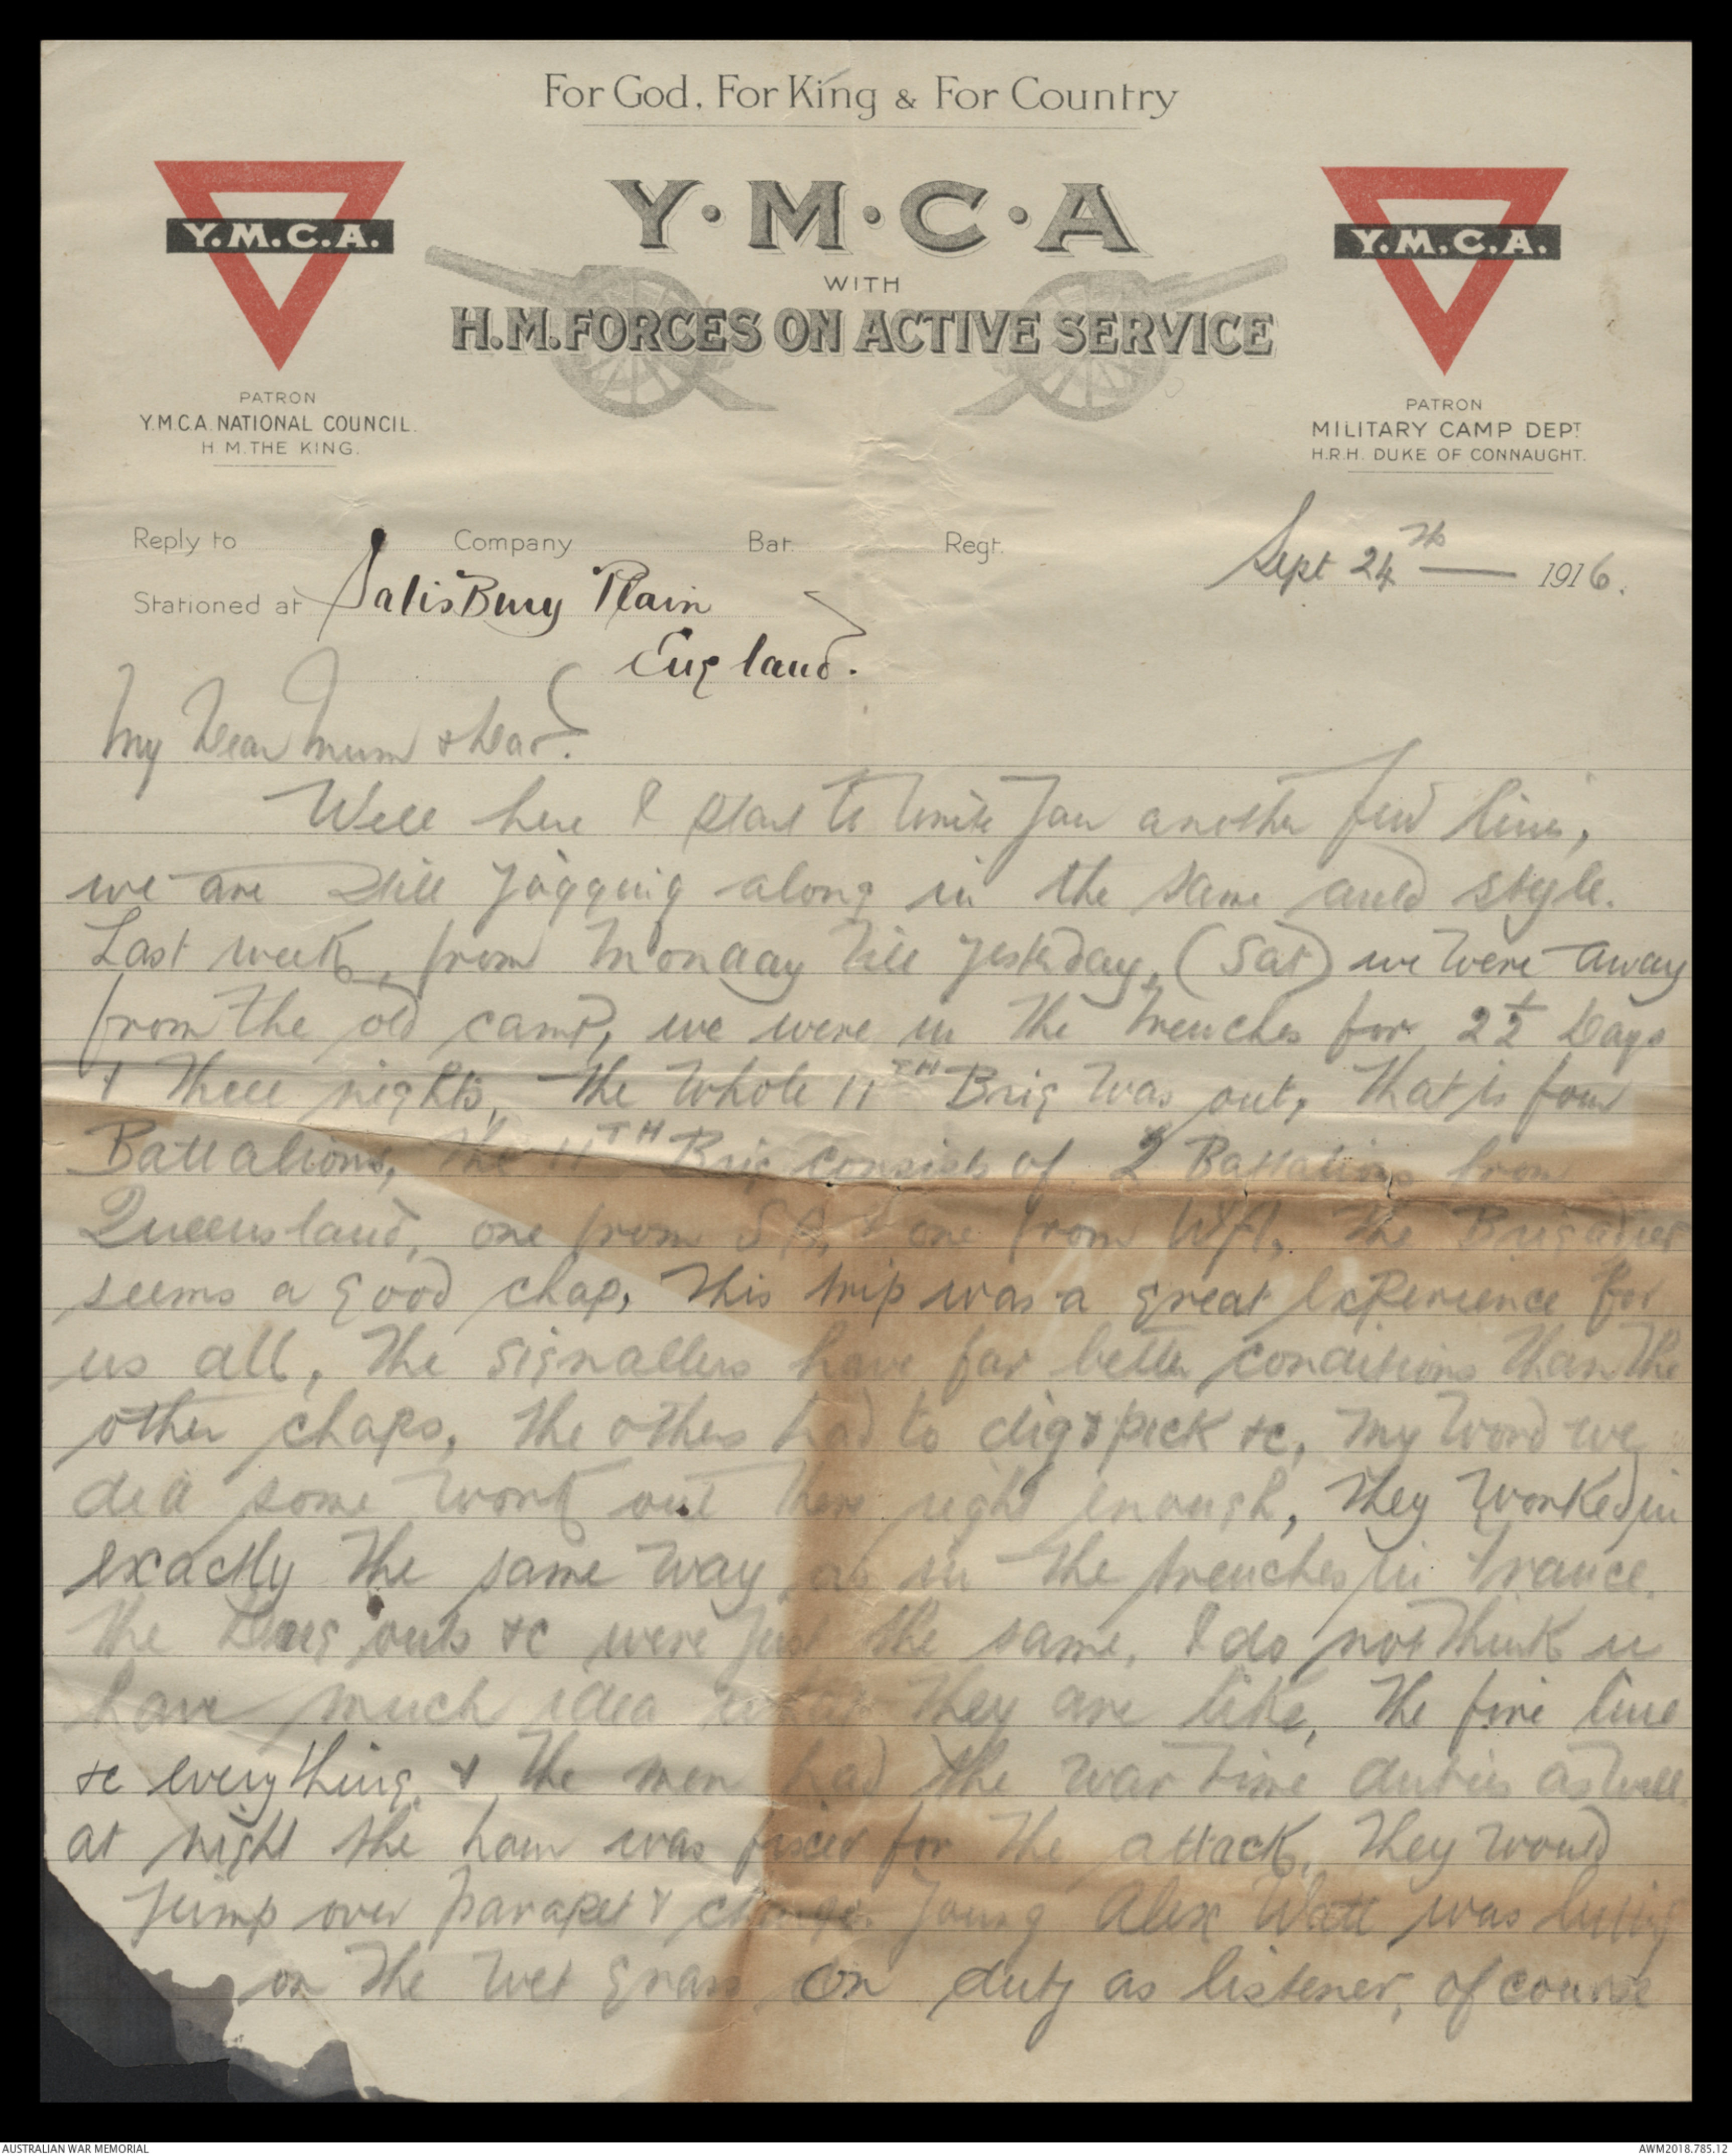 For God, For King & For Country
Y.M.C.A.
Y·M·C·A
WITH
H.M. FORCES ON ACTIVE SERVICE
Y.M.C.A.
PATRON
Y.M.C.A. NATIONAL COUNCIL.
H.M. THE KING.
PATRON
MILITARY CAMP DEPT
H.R.H. DUKE OF CONNAUGHT.
Reply to Company Bat. Regt. Sept 24th — 1916.
Stationed at Salisbury Plain
England.
My Dear Mum & Dad.
Well here I start to write you another few lines,
we are still jogging along in the same auld style.
Last week, from Monday till yesterday, (Sat) we were away
from the old camp, we were in the trenches for 2½ Days
& three nights, the whole 11TH Brig was out, that is four
Battalions, the 11TH Brig consists of 2 Battalions from
Queensland, one from S.A, & one from WA, the Brigadier
seems a good chap, this trip was a great experience for
us all, the signallers have far better conditions than the
other chaps, the others had to dig & pick &c, my word we
did some work out there right enough, they worked in
exactly the same way as in the trenches in France.
the Dug outs &c were just the same, I do not think u
have much idea what they are like, the fire line
&c everything, & the men had the war time duties as well.
at night the hour was fixed for the attack, they would
jump over parapet & charge. Young Alex Watt was
on the wet grass on duty as listener, of course
AUSTRALIAN WAR MEMORIAL
AWM2018.785.12